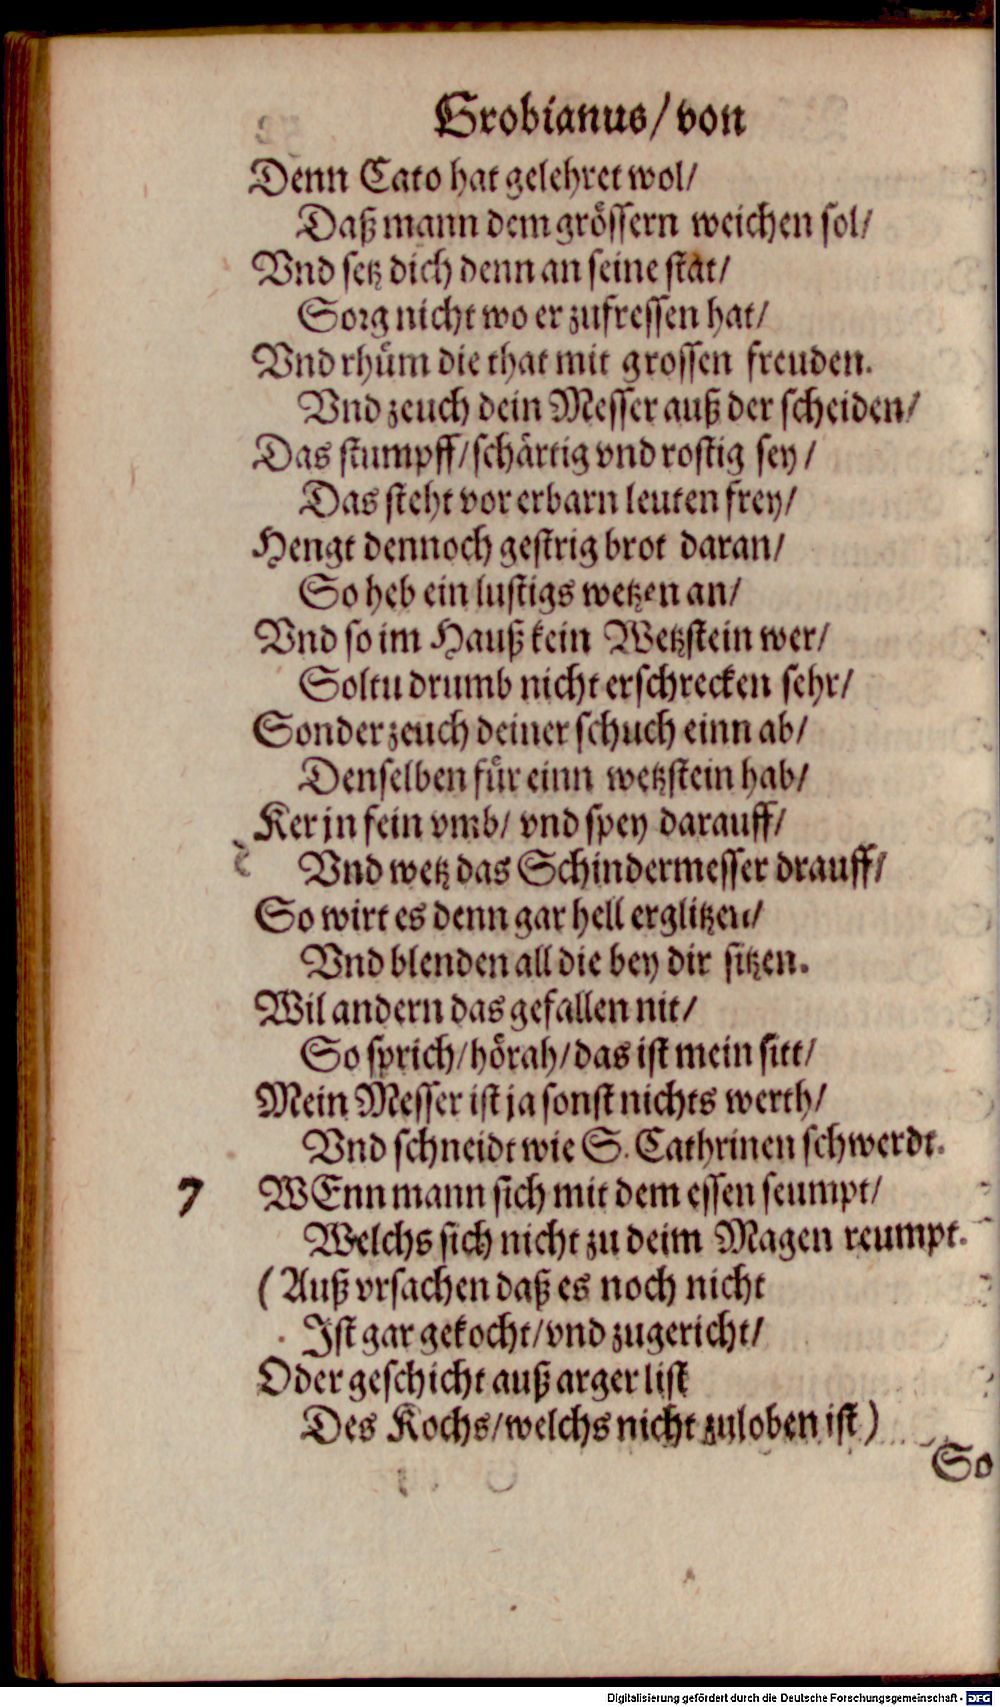 Grobianus/ von
Denn Cato hat gelehret wol/
Daß mann dem grössern weichen sol/
Vnd setz dich denn an seine stat/
Sorg nicht wo er zufressen hat/
Vnd rhům die that mit grossen freuden.
Vnd zeuch dein Messer auß der scheiden/
Das stumpff/ schärtig vnd rostig sey/
Das steht vor erbarn leuten frey/
Hengt dennoch gestrig brot daran/
So heb ein lustigs wetzen an/
Vnd so im Hauß kein Wetzstein wer/
Soltu drumb nicht erschrecken sehr/
Sonder zeuch deiner schuch einn ab/
Denselben für einn wetzstein hab/
Ker jn fein vmb/ vnd spey darauff/
Vnd wetz das Schindermesser drauff/
So wirt es denn gar hell erglitzen/
Vnd blenden all die bey dir sitzen.
Wil andern das gefallen nit/
So sprich/ hörah/ das ist mein sitt/
Mein Messer ist ja sonst nichts werth/
Vnd schneidt wie S. Cathrinen schwerdt.
7 WEnn mann sich mit dem essen seumpt/
Welchs sich nicht zu deim Magen reumpt.
(Auß vrsachen daß es noch nicht
Ist gar gekocht/ vnd zugericht/
Oder geschicht auß arger list
Des Kochs/ welchs nicht zuloben ist)
So
Digitalisierung gefördert durch die Deutsche Forschungsgemeinschaft - DFG